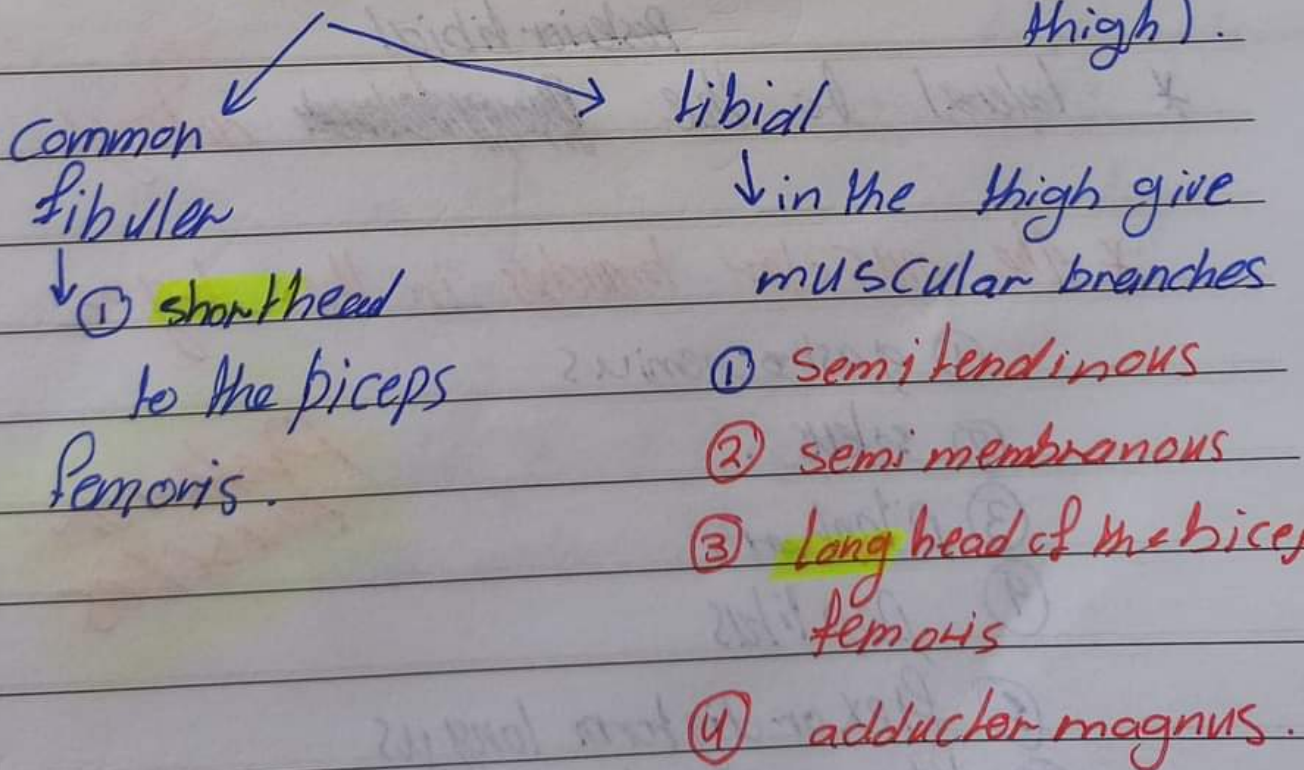 thigh).
Common
fibuler
① shorthead
to the biceps
femoris.
tibial
in the thigh give
muscular branches
① Semitendinous
② semimembranous
③ long head of the bicep
femoris
④ adductor magnus.